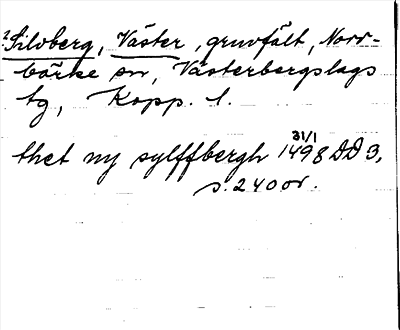 ? Silvberg, Väster, gruvfält, Norr-
bärke sn, Västerbergslags
tg, Kopp. l.
31/1
thet ny sylffbergh 1498 DD 3,
s. 240 or.